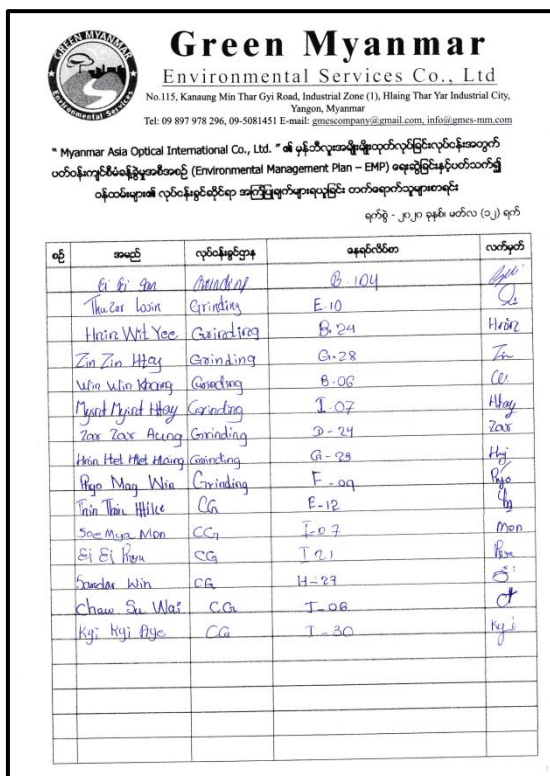 GREEN MYANMAR
Environmental Services
Green Myanmar
Environmental Services Co., Ltd
No.115, Kanaung Min Thar Gyi Road, Industrial Zone (1), Hlaing Thar Yar Industrial City,
Yangon, Myanmar
Tel: 09 897 978 296, 09-5081451 E-mail: gmescompany@gmail.com, info@gmes-mm.com
" Myanmar Asia Optical International Co., Ltd. " ၏ မှန်ဘီလူးအမျိုးမျိုးထုတ်လုပ်ခြင်းလုပ်ငန်းအတွက်
ပတ်ဝန်းကျင်စီမံခန့်ခွဲမှုအစီအစဉ် (Environmental Management Plan – EMP) ရေးဆွဲခြင်းနှင့်ပတ်သက်၍
ဝန်ထမ်းများ၏ လုပ်ငန်းခွင်ဆိုင်ရာ အကြံပြုချက်များရယူခြင်း တက်ရောက်သူများစာရင်း
ရက်စွဲ - ၂၀၂၀ ခုနှစ်၊ မတ်လ (၁၂) ရက်
စဉ် အမည် လုပ်ငန်းခွင်ဌာန နေရပ်လိပ်စာ လက်မှတ်
Ei Ei Grinding B-104
Thuzar Grinding E-10
Hnin Wit Yee Grinding B-24 Hnin
Zin Zin Htay Grinding G-28 Zin
Win Win Khaing Grinding B-06
Myint Myint Htay Grinding I-07 Htay
Zar Zar Aung Grinding D-24 Zar
Hnin Htet Htet Hlaing Grinding G-29
Phyo May Win Grinding F-09 Phyo
Thin Thin Hlike CG E-12
Soe Mya Mon CG I-07 Mon
Ei Ei Phyu CG I 21
Sandar Win CG H-29
Chaw Su Wai CG I-06
Kyi Kyi Aye CG I-30 Kyi